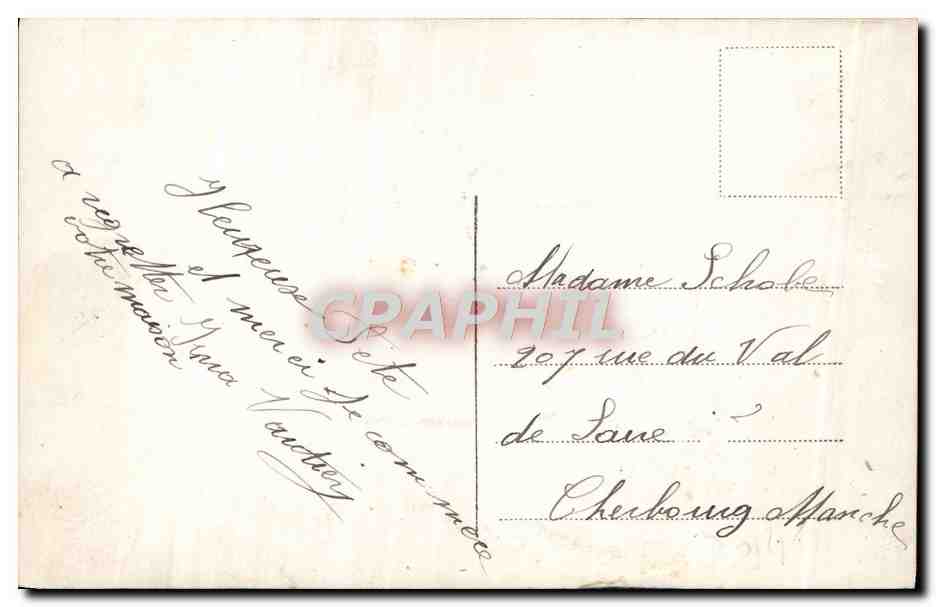 Heureuse Fête
et merci Je commence
a regretter
votre maison
Irma Vautier
Madame Schobe
207 rue du Val
de Saire
Cherbourg Manche
CPAPHIL